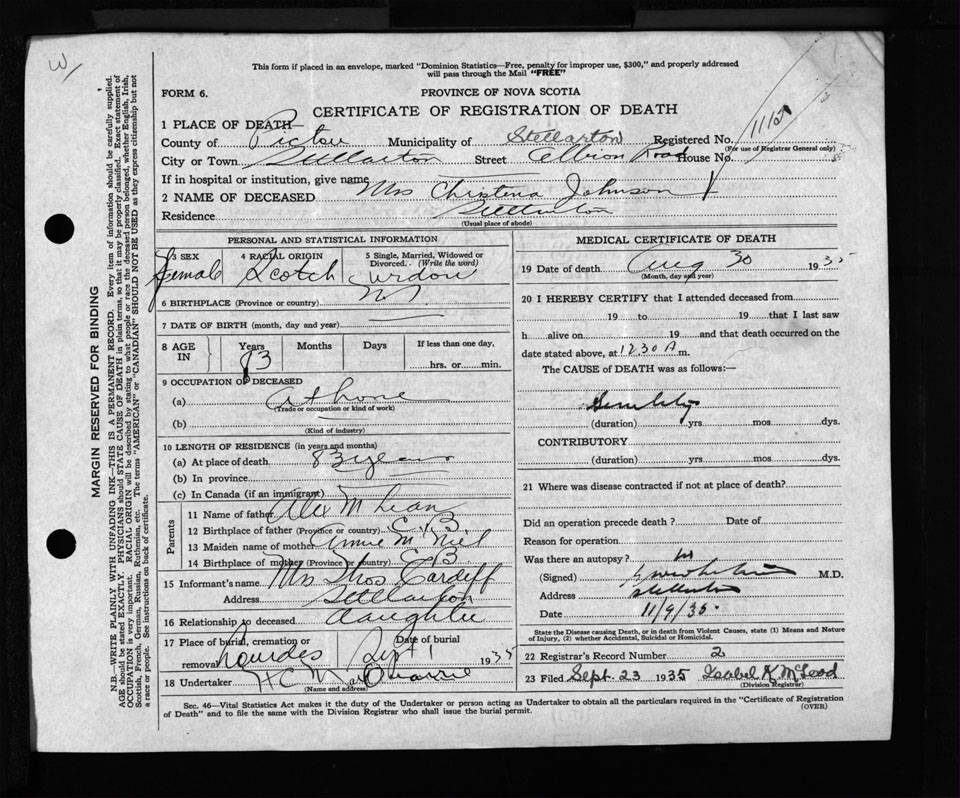 W
This form if placed in an envelope, marked "Dominion Statistics—Free, penalty for improper use, $300," and properly addressed
will pass through the Mail "FREE"
FORM 6.
PROVINCE OF NOVA SCOTIA
CERTIFICATE OF REGISTRATION OF DEATH
1 PLACE OF DEATH—
County of Pictou Municipality of Stellarton Registered No.
(For use of Registrar General only)
City or Town Stellarton Street Albion Road House No.
If in hospital or institution, give name
2 NAME OF DECEASED Mrs Christena Johnson
Residence Stellarton
(Usual place of abode)
PERSONAL AND STATISTICAL INFORMATION
3 SEX Female
4 RACIAL ORIGIN Scotch
5 Single, Married, Widowed or Divorced. (Write the word) Widow
6 BIRTHPLACE (Province or country) NS
7 DATE OF BIRTH (month, day and year)
8 AGE IN Years 83 Months Days If less than one day, hrs. or min.
9 OCCUPATION OF DECEASED
(a) at home
(Trade or occupation or kind of work)
(b)
(Kind of industry)
10 LENGTH OF RESIDENCE (in years and months)
(a) At place of death 83 years
(b) In province
(c) In Canada (if an immigrant)
Parents
11 Name of father Alex McLean
12 Birthplace of father (Province or country) C.B.
13 Maiden name of mother Annie McNiel
14 Birthplace of mother (Province or country) C B
15 Informant's name Mrs Thos Cardiff
Address Stellarton
16 Relationship to deceased daughter
17 Place of burial, cremation or removal Lourdes Date of burial Sept 1 1935
18 Undertaker H C
(Name and address)
MEDICAL CERTIFICATE OF DEATH
19 Date of death Aug 30 1935
(Month, day and year)
20 I HEREBY CERTIFY that I attended deceased from
19 to 19 that I last saw
h alive on 19 and that death occurred on
date stated above, at 12.30 A m.
The CAUSE of DEATH was as follows:—
Senility
(duration) yrs. mos. dys.
CONTRIBUTORY
(duration) yrs. mos. dys.
21 Where was disease contracted if not at place of death?
Did an operation precede death? Date of
Reason for operation
Was there an autopsy?
(Signed) M.D.
Address Stellarton
Date 11/9/35.
State the Disease causing Death, or in death from Violent Causes, state (1) Means and Nature
of Injury, (2) whether Accidental, Suicidal or Homicidal.
22 Registrar's Record Number 2
23 Filed Sept. 23 1935 Isabel K McLeod
(Division Registrar)
Sec. 46—Vital Statistics Act makes it the duty of the Undertaker or person acting as Undertaker to obtain all the particulars required in the "Certificate of Registration
of Death" and to file the same with the Division Registrar who shall issue the burial permit.
(OVER)
MARGIN RESERVED FOR BINDING
N.B.—WRITE PLAINLY WITH UNFADING INK—THIS IS A PERMANENT RECORD. Every item of information should be carefully supplied.
AGE should be stated EXACTLY. PHYSICIANS should STATE CAUSE OF DEATH in plain terms, so that it may be properly classified. Exact statement of
OCCUPATION is very important. RACIAL ORIGIN will be described by stating to what people or race the deceased person belonged, whether English, Irish,
Scottish, French, German, Russian, Ruthenian, etc. The terms "AMERICAN" or "CANADIAN" SHOULD NOT BE USED as they express citizenship but not
a race or people. See instructions on back of certificate.